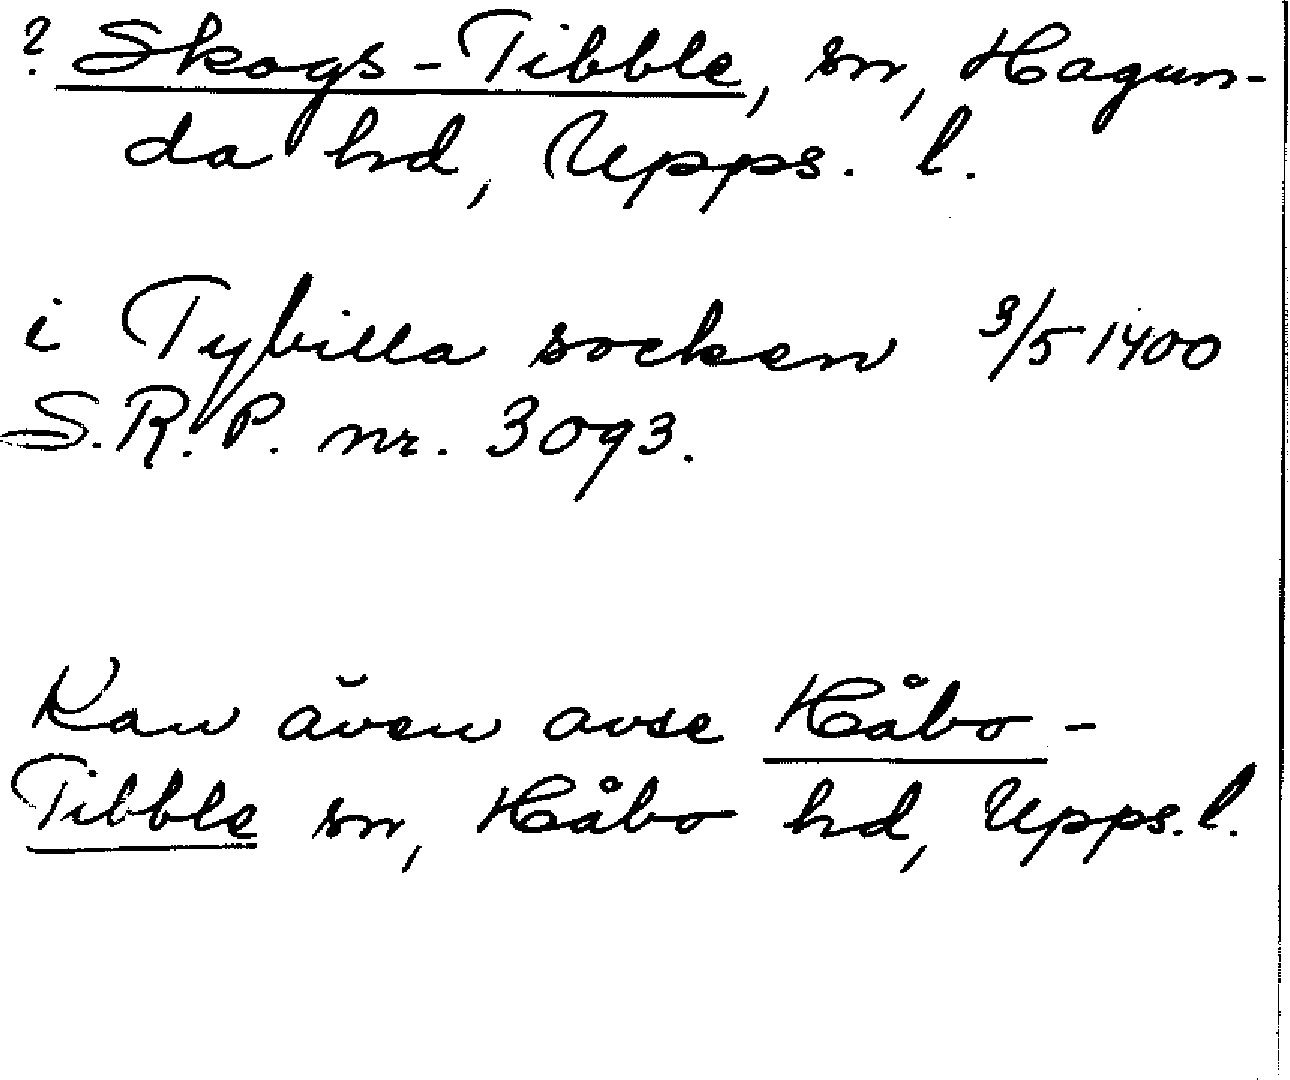 ? Skogs-Tibble, sn, Hagun-
da hd, Upps. l.
i Tybilla socken 9/5 1400
S.R.P. nr. 3093.
Kan även avse Håbo-
Tibble sn, Håbo hd, Upps. l.